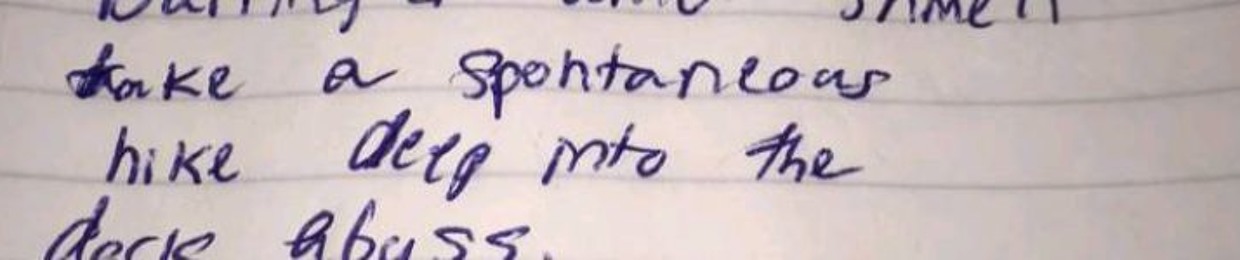 a
take a spontaneous
hike deep into the
dark abyss.